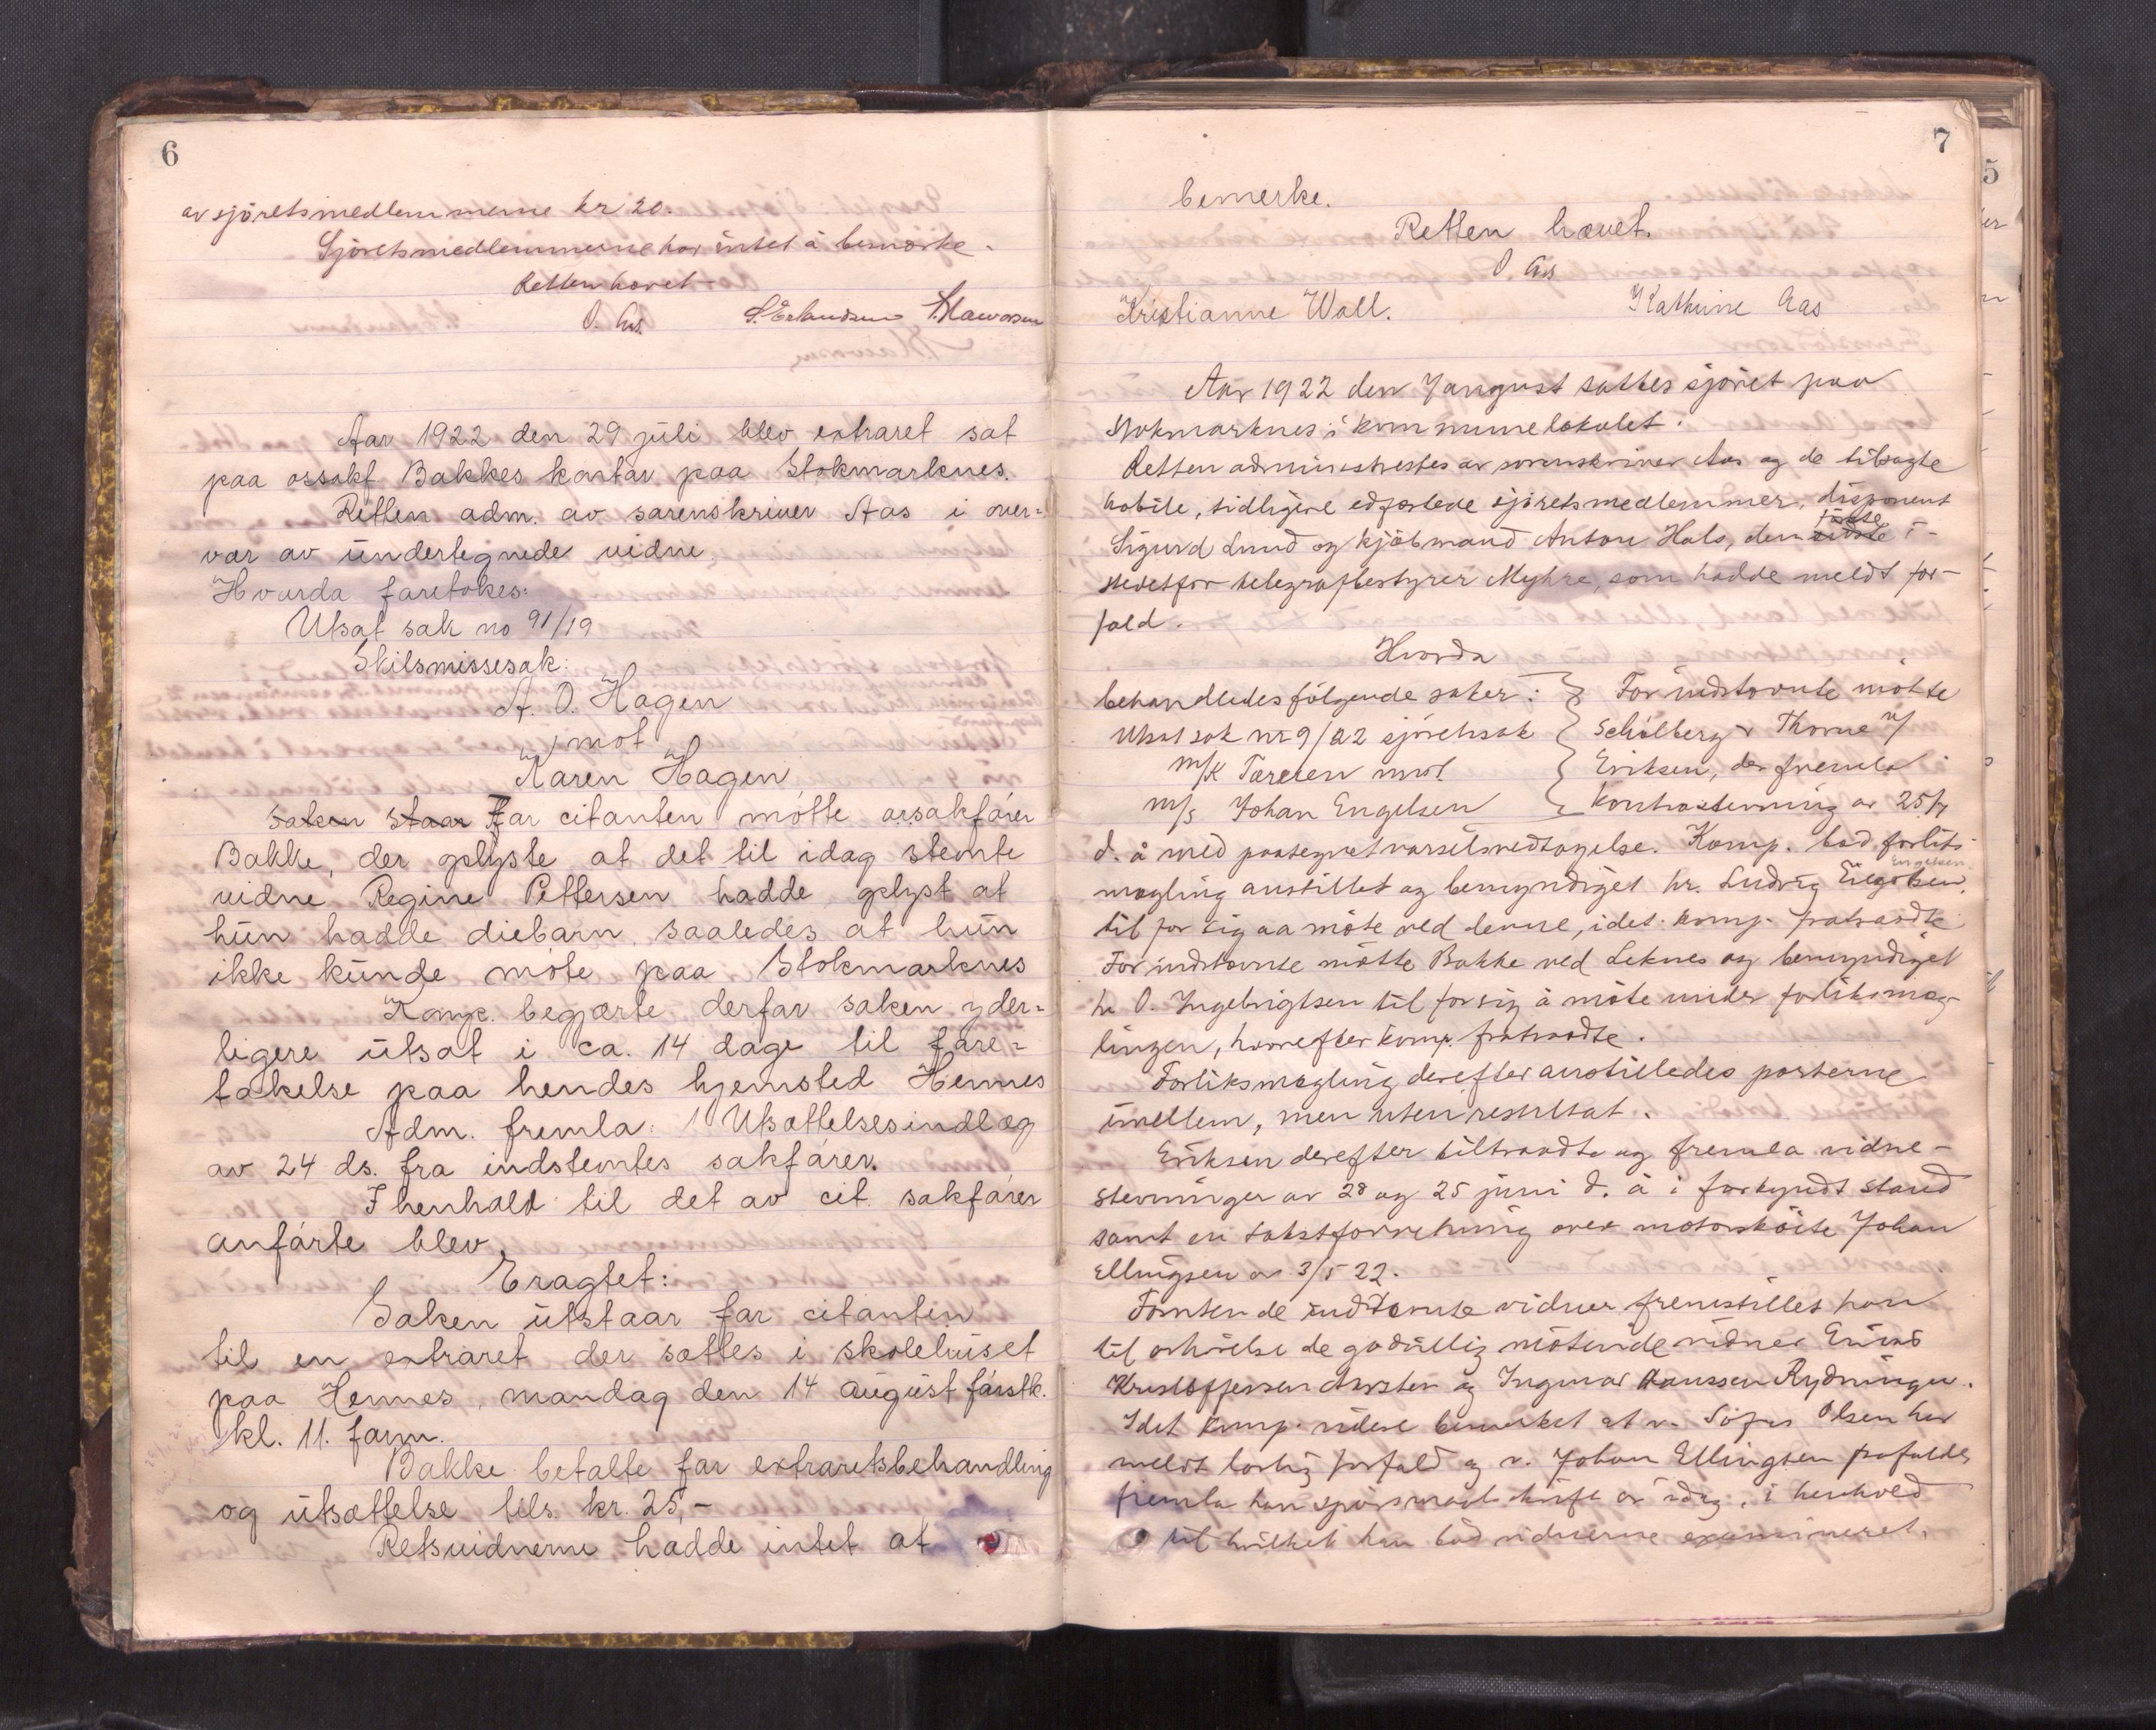 6
av sjøretsmedlemmerne kr 20.
Sjøretsmedlemmerne har intet å bemærke.
Retten hævet
O. Aas. S. Erlandsen
Aar 1922 den 29 juli blev extraret sat
paa ossakf Bakkes kontor paa Stokmarknes.
Retten adm. av sorenskriver Aas i over=
vær av undertegnede vidne
Hvorda foretokes:
Utsat sak no 91/19
Skilsmissesak:
A. O. Hagen
mot
Karen Hagen
Saken staar For citanten møtte orsakfører
Bakke, der oplyste at det til idag stevnte
vidne Regine Pettersen hadde oplyst at
hun hadde diebarn, saaledes at hun
ikke kunde møte paa Stokmarknes
Komp. begjærte derfor saken yder=
ligere utsat i ca. 14 dage til fore=
takelse paa hendes hjemsted Hennes
Adm. fremla: 1 Utsættelsesindlæg
av 24 ds. fra indstevntes sakfører.
I henhold til det av cit. sakfører
anførte blev
Eragtet:
Saken utstaar for citanten
til en extraret der sættes i skolehuset
paa Hennes, mandag den 14 august førstk.
kl. 11. form.
Bakke betalte for extraretsbehandling
og utsættelse tils. kr. 25,-
Retsvidnerne hadde intet at
7
bemerke.
Retten hævet.
O Aas
Kristianne Woll. Kathrine Aas
Aar 1922 den 7 august sattes sjøret paa
Stokmarknes i kommunelokalet.
Retten administrertes av sorenskriver Aas og de tilsagte
habile, tidligere edfæstede sjøretsmedlemmer, disponent
Sigurd Lund og kjøbmand Anton Hals, den sidste i-
første
stedetfor telegrafbestyrer Myhre, som hadde meldt for-
fald.
Hvorda
behandledes følgende saker: } For indstevnte møtte
Utsat sak nr 9/22 sjøretssak } Schølberg & Thorne v/
m/k Tareren mot } Eriksen, der fremla
m/s Johan Engelsen } kontrastevning av 25/7
d. å med paategnet varselsvedtagelse. Komp. bad forliks
Engelsen
mægling anstillet og bemyndiget hr. Ludvig
til for sig aa møte ved denne, idet komp. fratraadte
For indstevnte møtte Bakke ved Leknes og bemyndiget
hr O. Ingebrigtsen til for sig å møte under forliksmæg-
lingen, hvorefter komp. fratraadte.
Forliksmægling derefter anstilledes parterne
imellem, men uten resultat.
Eriksen derefter tiltraadte og fremla vidne-
stevninger av 28 og 25 juni d. å i forkyndt stand
samt en takstforretning over motorskøite Johan
Ellingsen av 3/5 22.
Foruten de indstevnte vidner fremstilles han
til avhørelse de godvillig møtende vidner
Kristoffersen og Ingvar Hanssen Rydningen.
Idet komp. videre bemerket at v. Olsen har
meldt lovlig forfald og v. Johan Ellingsen frafaldes
fremla han spørsmaalsskrift av idag, i henhold
til hvilket han bad vidnerne examineret.